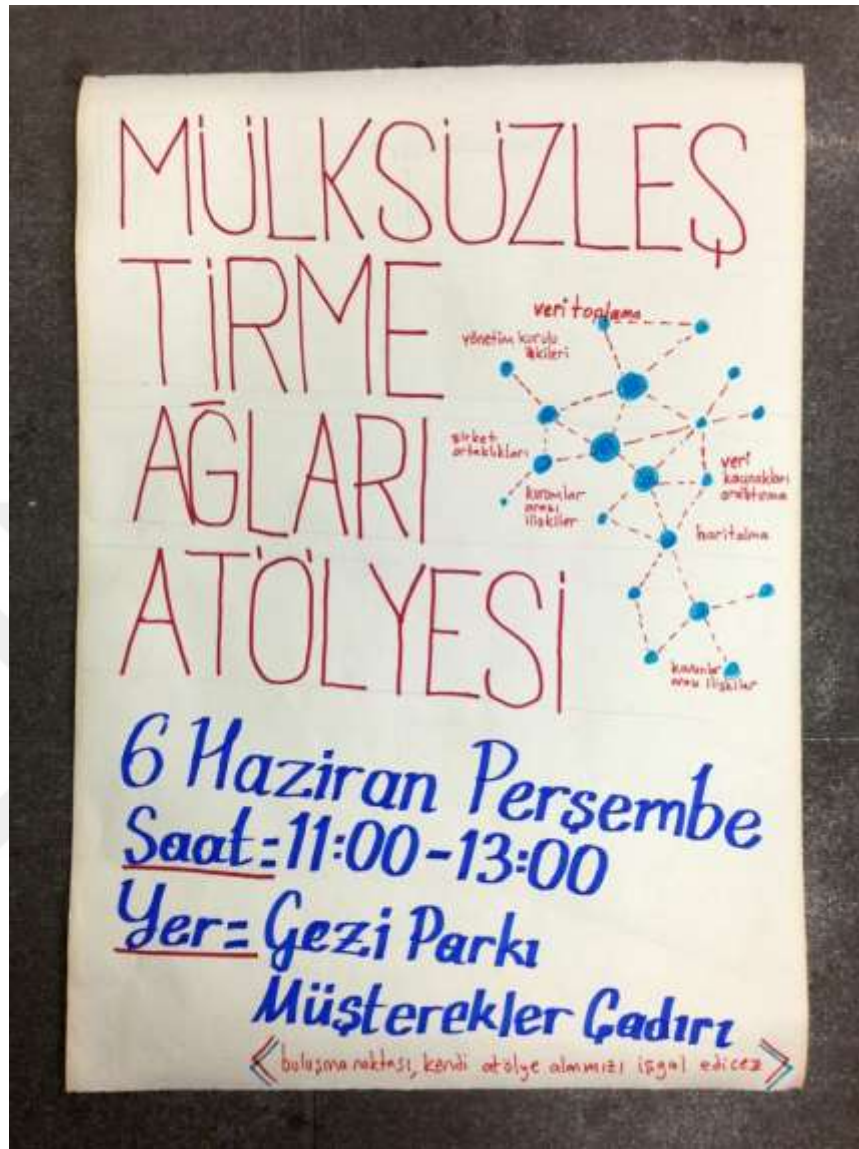 MÜLKSÜZLEŞ
TİRME
AĞLARI
ATÖLYESİ
veri toplama
yönetim kurulu
ilişkileri
şirket
ortaklıkları
kurumlar
arası
ilişkiler
veri
kaynakları
araştırma
haritalma
kurumlar
arası ilişkiler
6 Haziran Perşembe
Saat=11:00-13:00
Yer= Gezi Parkı
Müşterekler Çadırı
buluşma noktası, kendi atölye alanımızı işgal edicez